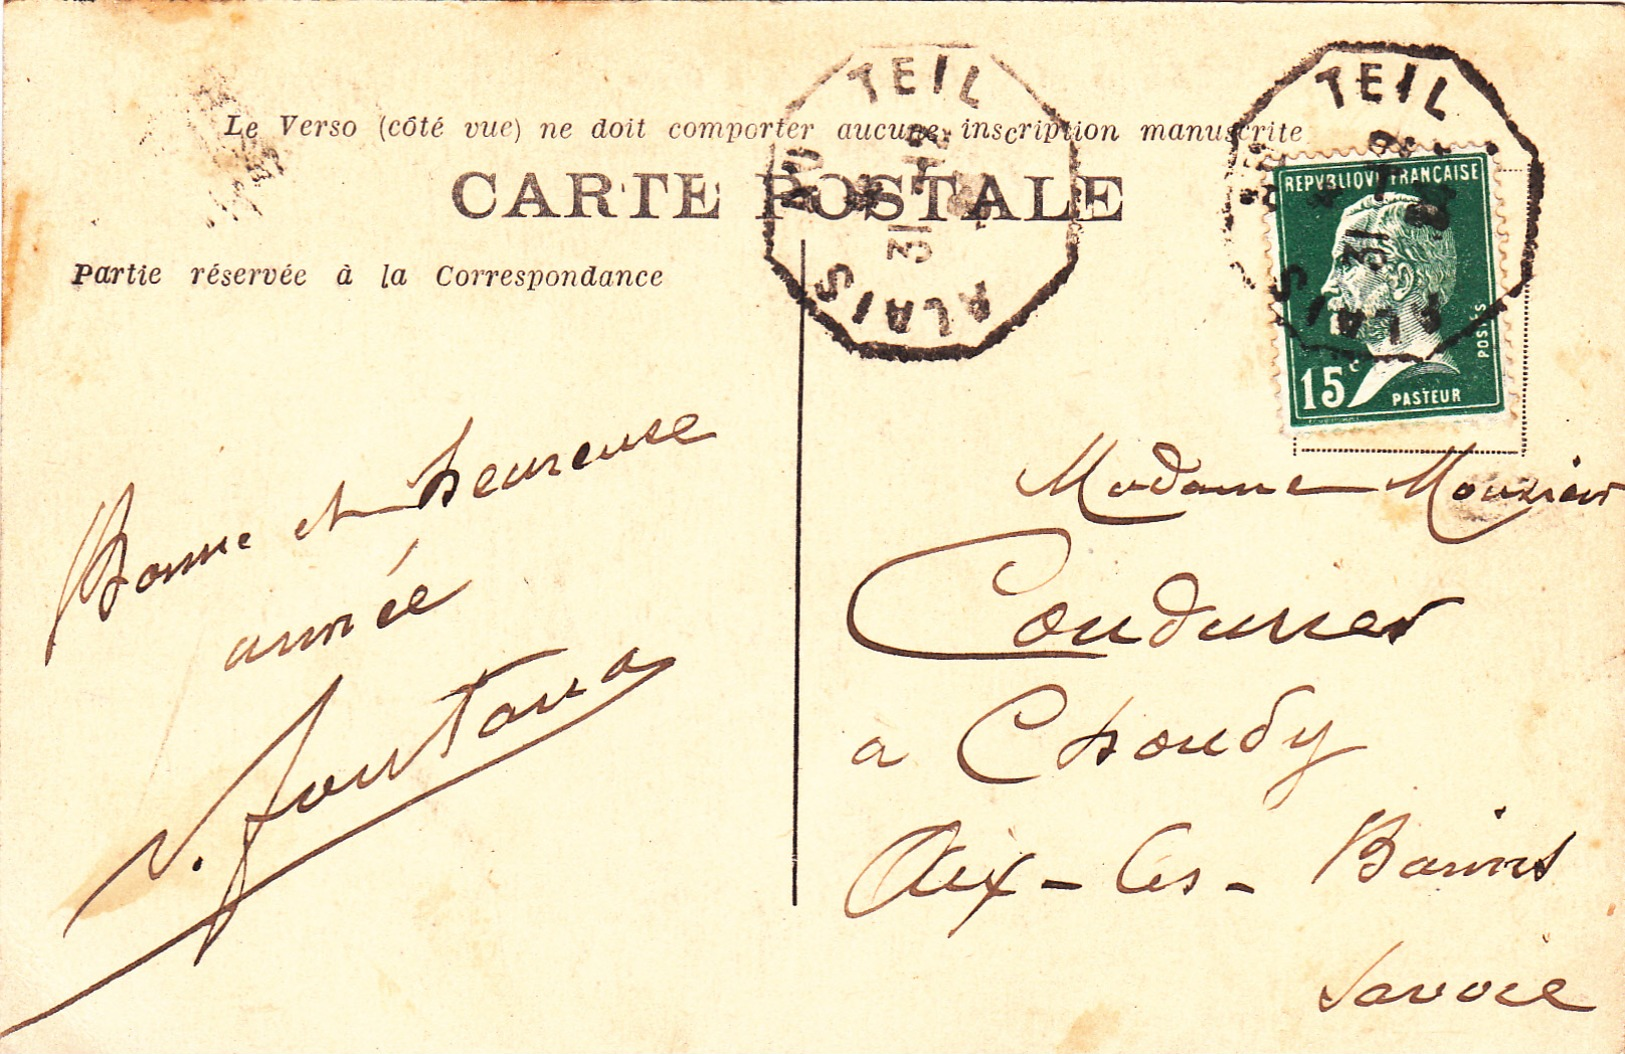 Le Verso (côté vue) ne doit comporter aucune inscription manuscrite
CARTE POSTALE
Partie réservée à la Correspondance
TEIL AU ALAIS
31
TEIL
ALAIS
31
REPVBLIQVE FRANÇAISE
POSTES
15c PASTEUR
Bonne et heureuse
année
V. Fontana
Madame
à Choudy
Aix-les-Bains
Savoie